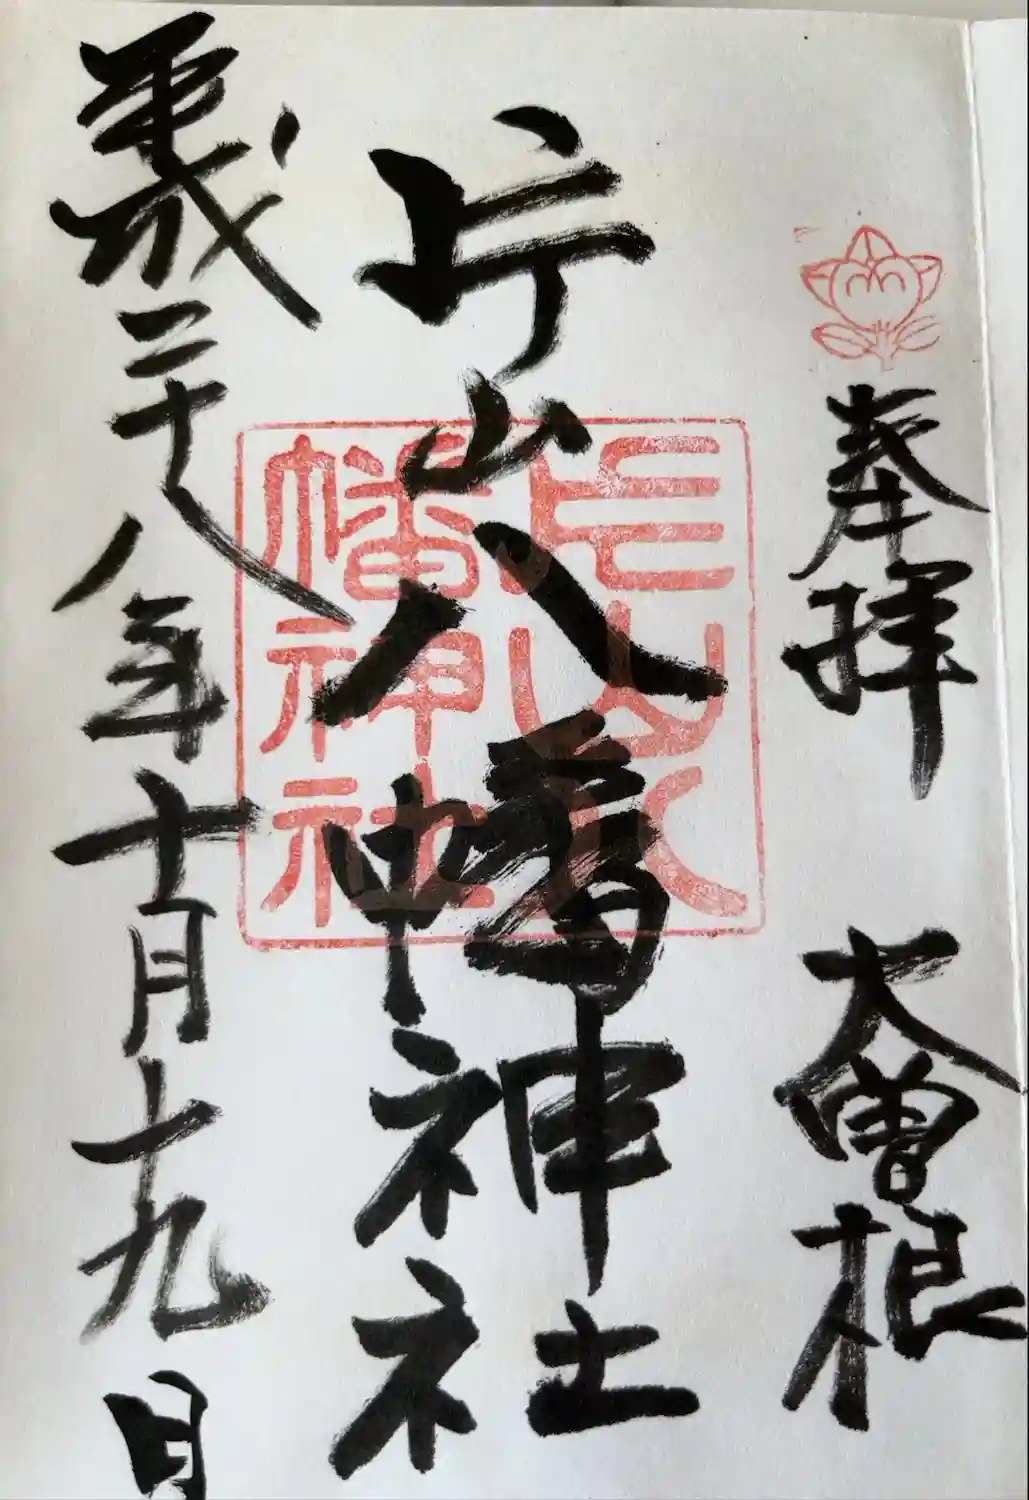 奉拝 大曽根
片山八幡神社
片山八
幡神社
平成二十八年十月十九日